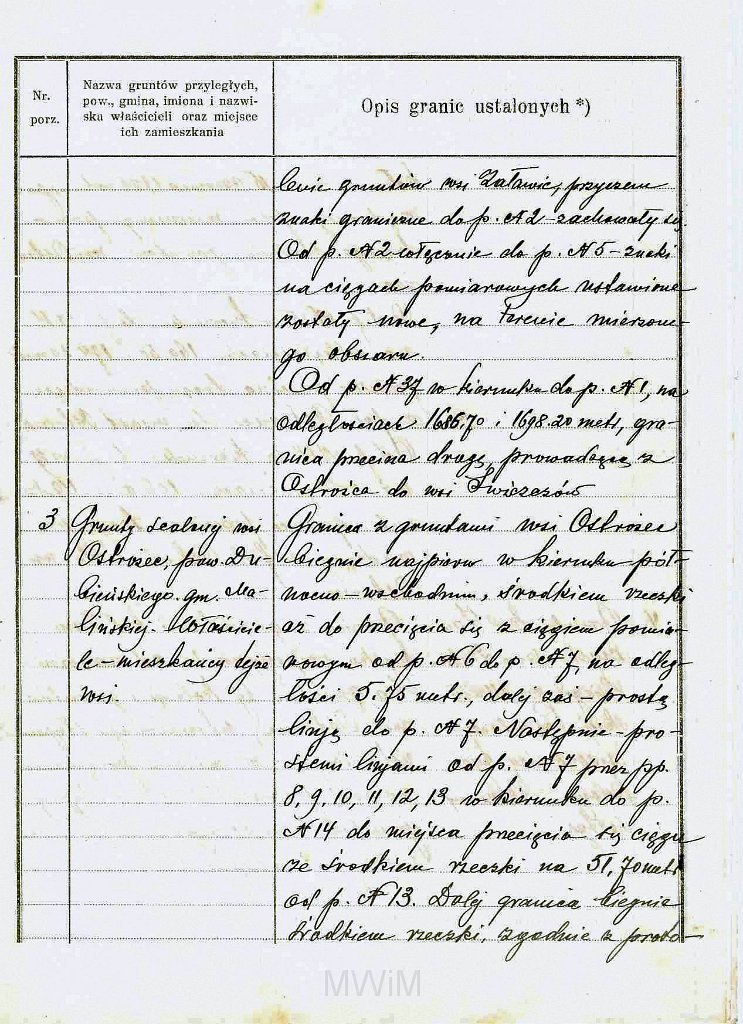 Nr.
porz.
Nazwa gruntów przyległych,
pow., gmina, imiona i nazwi-
ska właścicieli oraz miejsce
ich zamieszkania
Opis granic ustalonych *)
lenie gruntów wsi Załawic, przyczem
znaki graniczne do p. №2 - zachowały się.
Od p. №2 włącznie do p. №5 - znaki
na ciągach pomiarowych ustawione
zostały nowe, na terenie mierzone-
go obszaru.
Od p. №37 w kierunku do p. №1, na
odległościach 1686.70 i 1698.20 metr, gra-
nica przecina drogę, prowadzącą z
Ostrożca do wsi
3
Grunty scalonej wsi
Ostrożec, pow. Du-
bieńskiego. gm. Ma-
lińskiej. Właścicie-
le - mieszkańcy tejże
wsi.
Granica z gruntami wsi Ostrożec
biegnie najpierw w kierunku pół-
nocno - wschodnim, środkiem rzeczki
aż do przecięcia się z ciągiem pomia-
rowym od p. №6 do p. №7, na odleg-
łości 5.75 metr., dalej zaś - prostą
linją do p. №7. Następnie - pro-
stemi linjami od p. №7 przez pp.
8, 9, 10, 11, 12, 13 w kierunku do p.
№14 do miejsca przecięcia się ciągu
ze środkiem rzeczki na 51,70 metr
od p. №13. Dalej granica biegnie
środkiem rzeczki, zgodnie z proto-
MWiM